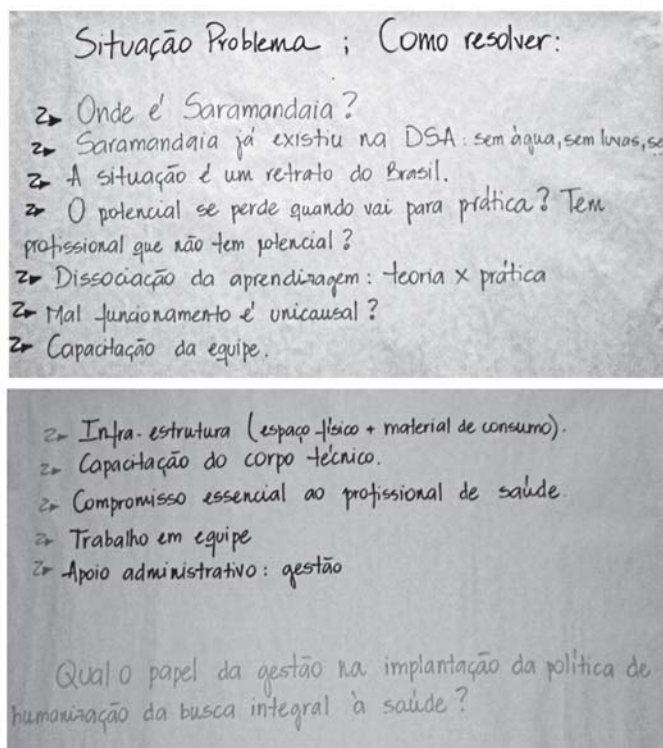 Situação Problema ; Como resolver:
Onde é Saramandaia?
Saramandaia já existiu na DSA: sem àgua, sem luvas, se
A situação é um retrato do Brasil.
O potencial se perde quando vai para prática? Tem
profissional que não tem potencial?
Dissociação da aprendizagem: teoria x prática
Mal funcionamento é unicausal?
Capacitação da equipe.
Infra-estrutura (espaço físico + material de consumo).
Capacitação do corpo técnico.
Compromisso essencial ao profissional de saúde.
Trabalho em equipe
Apoio administrativo: gestão
Qual o papel da gestão na implantação da política de
humanização da busca integral à saúde?